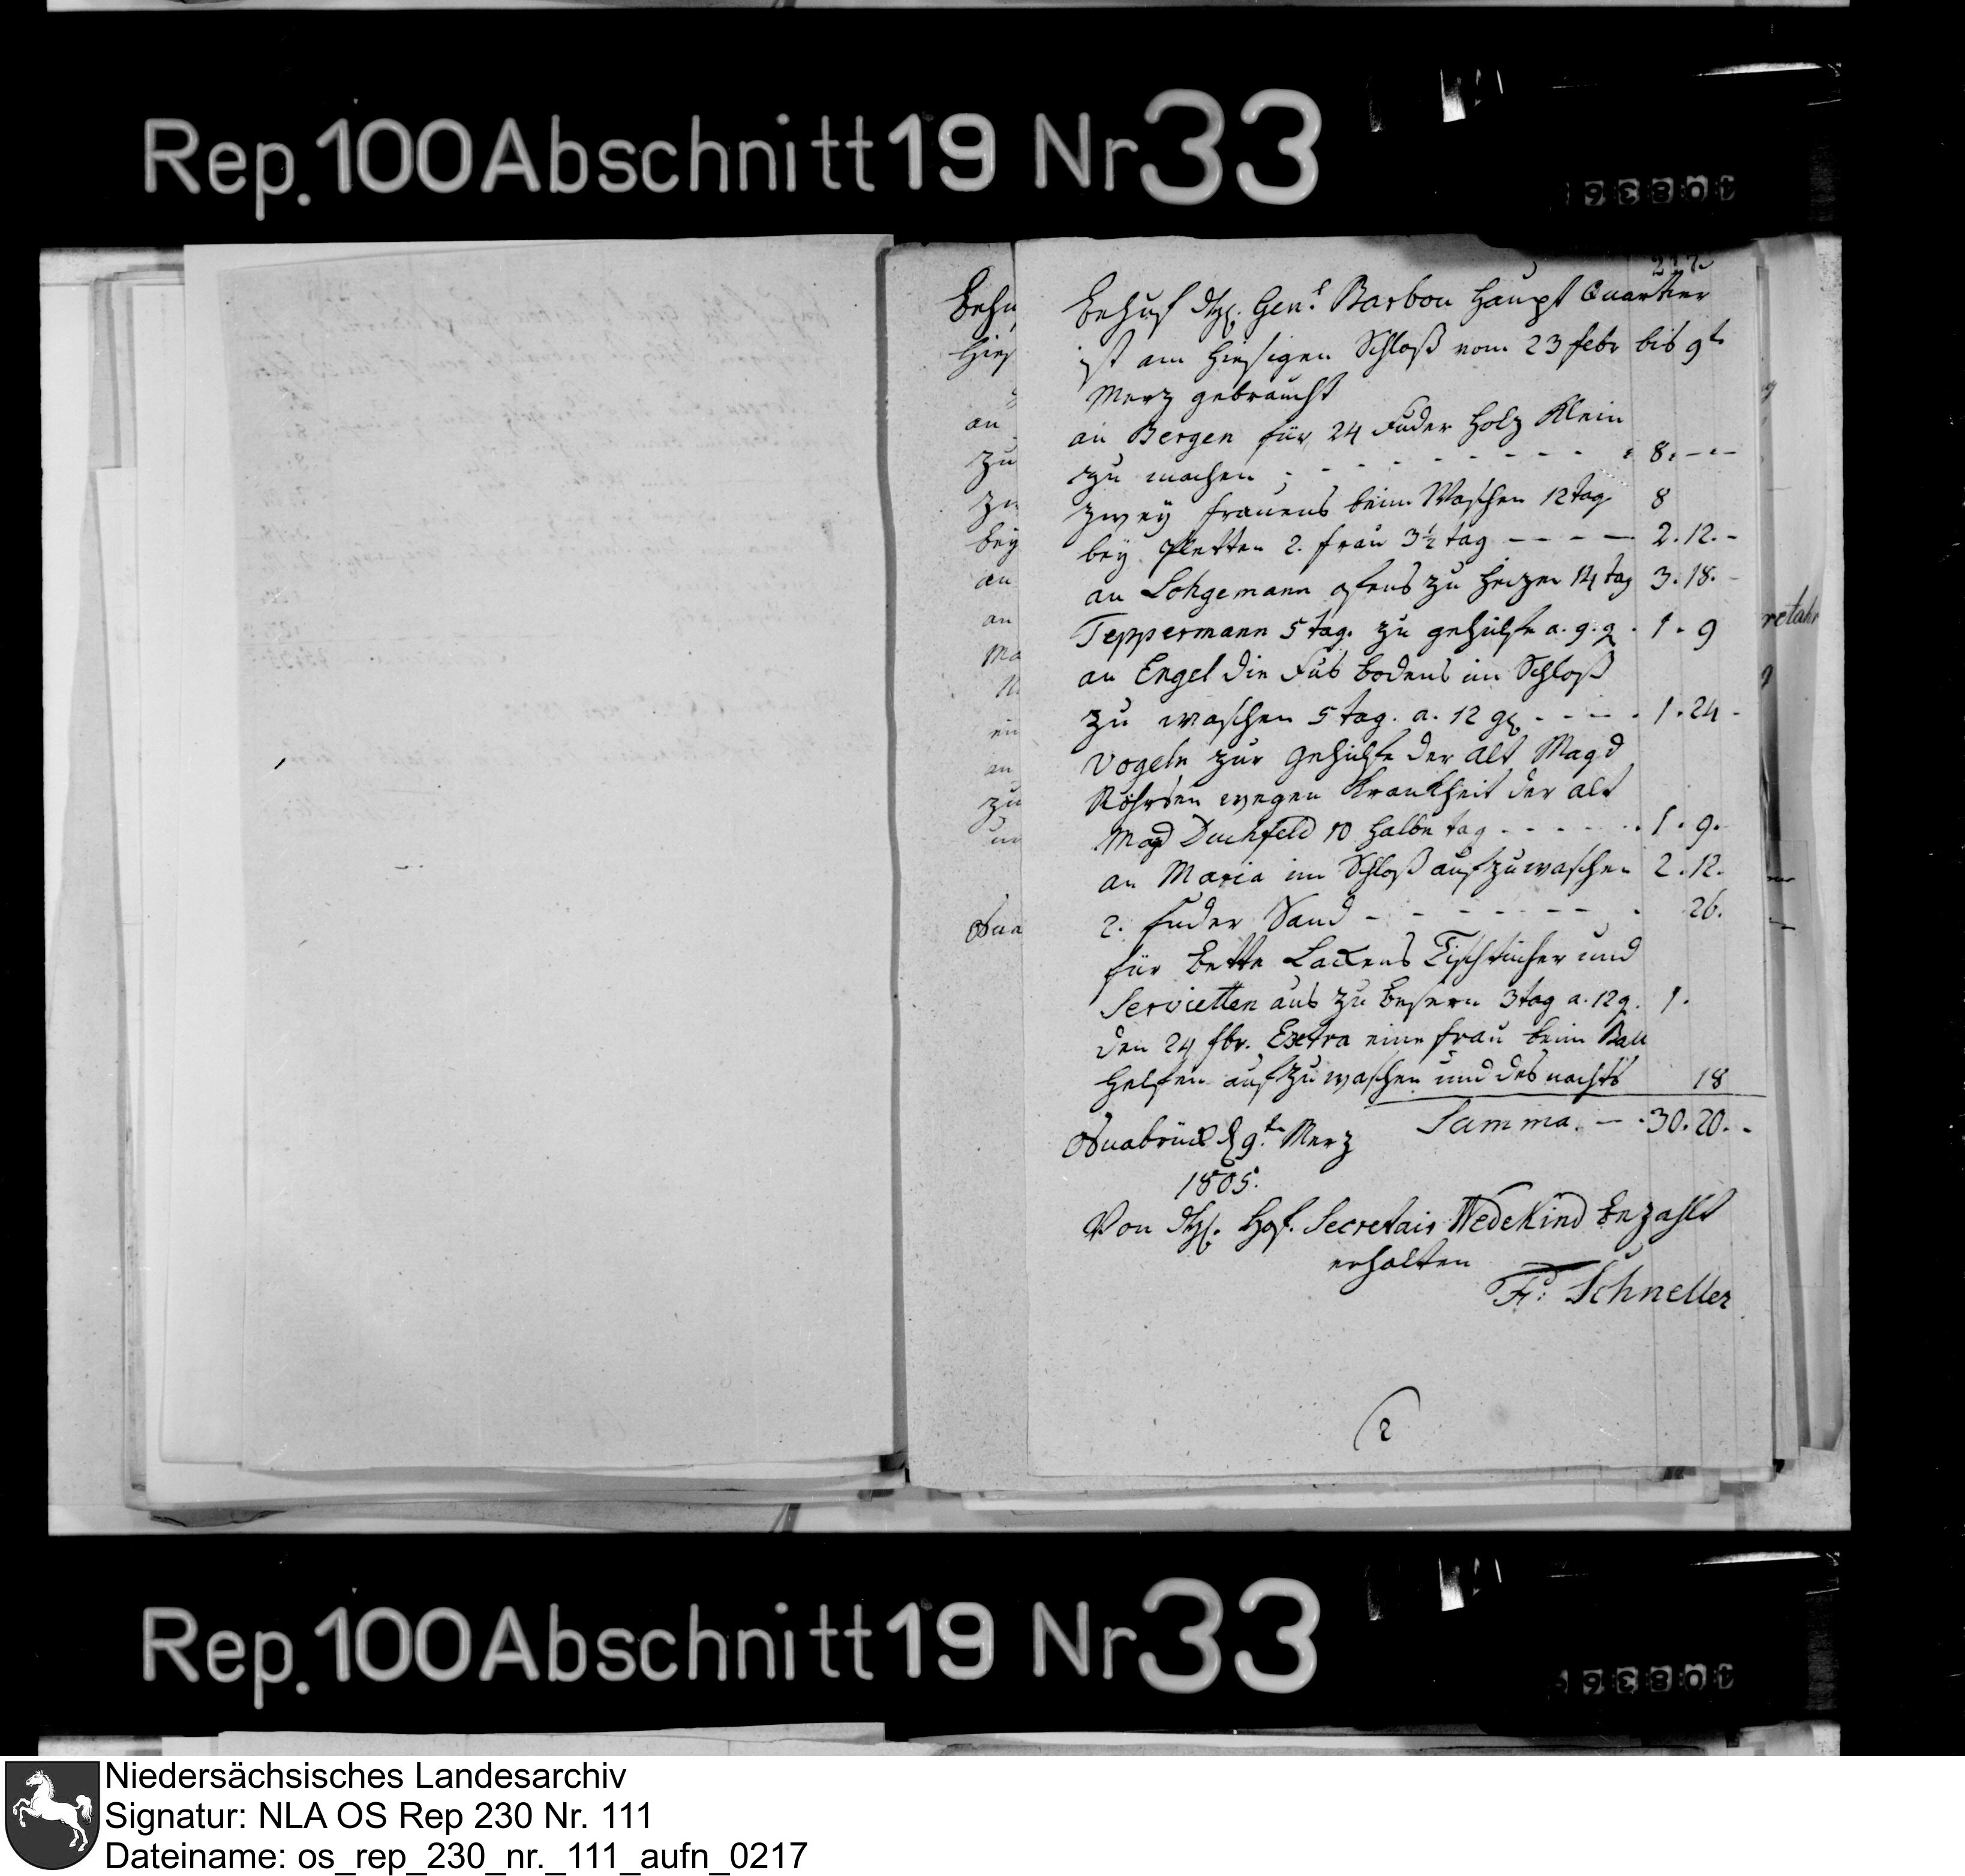 Rep. 100 Abschnitt 19 Nr 33
217.
Behuf des Genl. Barbou Haupt Quartier
ist am hiesigen Schloß vom 23 febr bis 9t
Merz gebraucht
an Bergen für 24 Fuder Holz Klein
zu machen - - - - - - - - 8. - - -
zwey frauens beim Waschen 12 tag 8
bey Pletten 2. frau 3½ tag - - - - 2. 12. -
an Lohgemann ofens zu heizen 14 tag 3. 18. -
Teppermann 5 tag. zu gehülfe a. 9. g. 1. 9
an Engel die Fus bodens im Schloß
zu waschen 5 tag. a. 12 g - - - - 1. 24 -
Vogeln zur Gehülfe der alt Magd
Röhrsen wegen Krankheit der alt
Magd Duchfeld 10 halbe tag - - - - - 1. 9.
an Maria im Schloß aufzuwaschen 2. 12.
2. fuder Sand - - - - - - - - 26.
für Bette Lackens Tischtücher und
Servietten aus zu besern 3 tag a. 12 g. 1.
den 24 fbr. Extra eine frau beim Ball
helfen aufzuwaschen und des nachts 18
Summa. - 30. 20. -
Osnabrück d 9.ten Merz
1805.
Von H. Hof. Secretair Wedekind bezahlt
erhalten
Fr: Schneller
2
Behu
hies
an
zu
zw
bey
an
an
Ma
ein
an
zu
un
Osna
retair
Rep. 100 Abschnitt 19 Nr 33
Niedersächsisches Landesarchiv
Signatur: NLA OS Rep 230 Nr. 111
Dateiname: os_rep_230_nr._111_aufn_0217